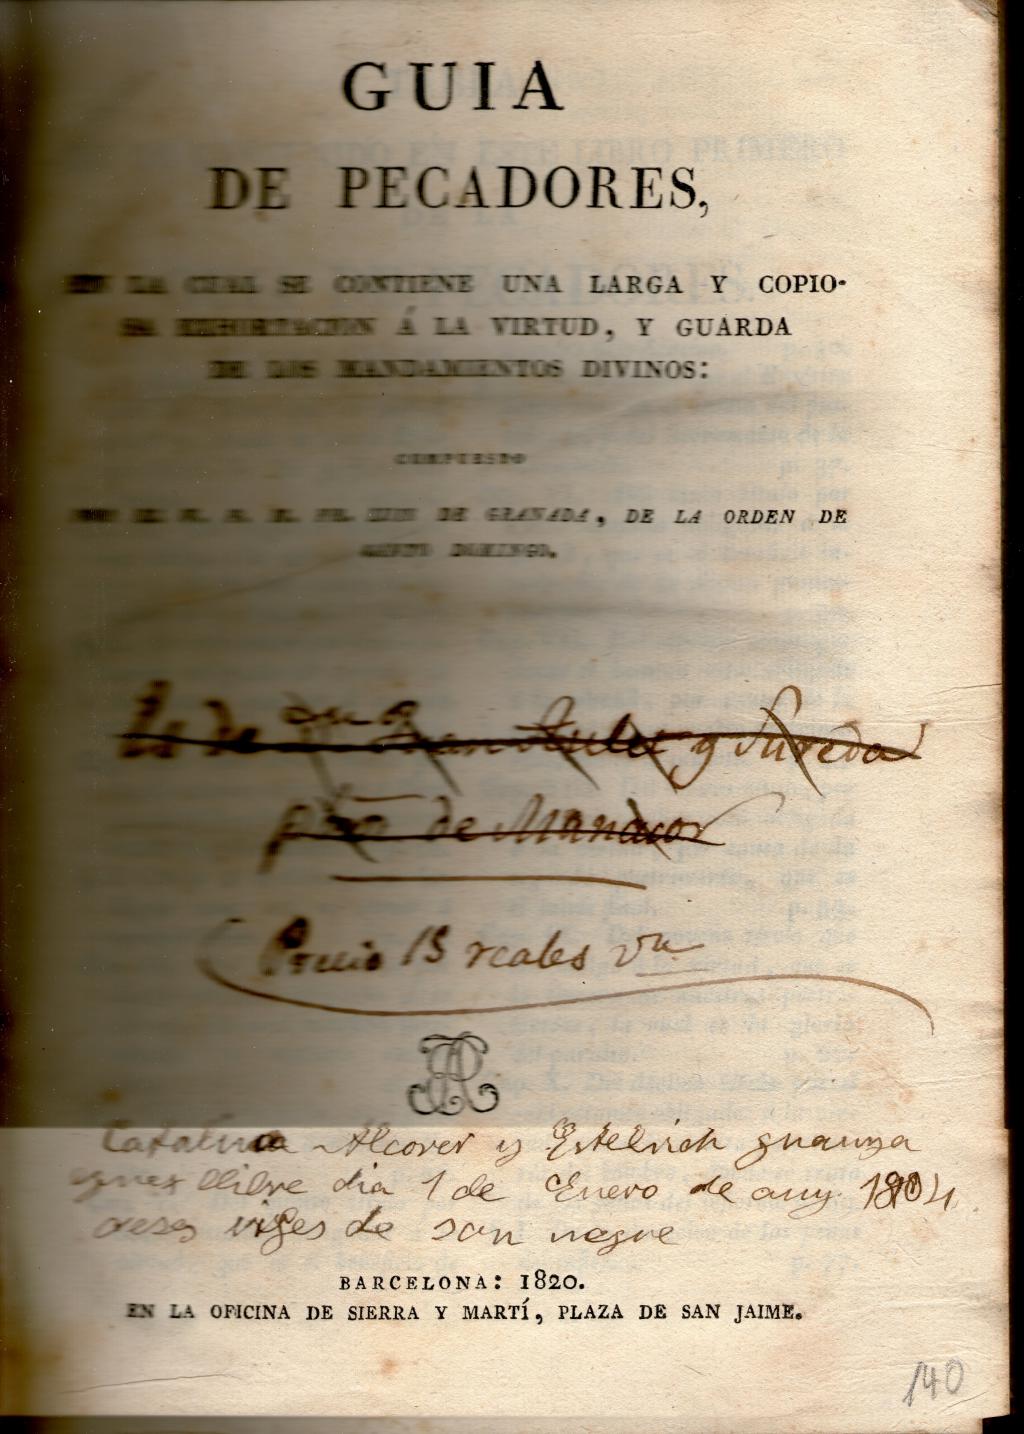 GUIA
DE PECADORES,
EN LA CUAL SE CONTIENE UNA LARGA Y COPIO-
SA EXHORTACION Á LA VIRTUD, Y GUARDA
DE LOS MANDAMIENTOS DIVINOS:
COMPUESTO
POR EL V. P. M. FR. LUIS DE GRANADA, DE LA ORDEN DE
SANTO DOMINGO.
Es de Dn Juan y Sureda
de Manacor
Precio 15 reales vn
Catalina Alcover y Estelrich guanya
llibre dia 1 de Enero de any 1904
de son negre
BARCELONA: 1820.
EN LA OFICINA DE SIERRA Y MARTÍ, PLAZA DE SAN JAIME.
140